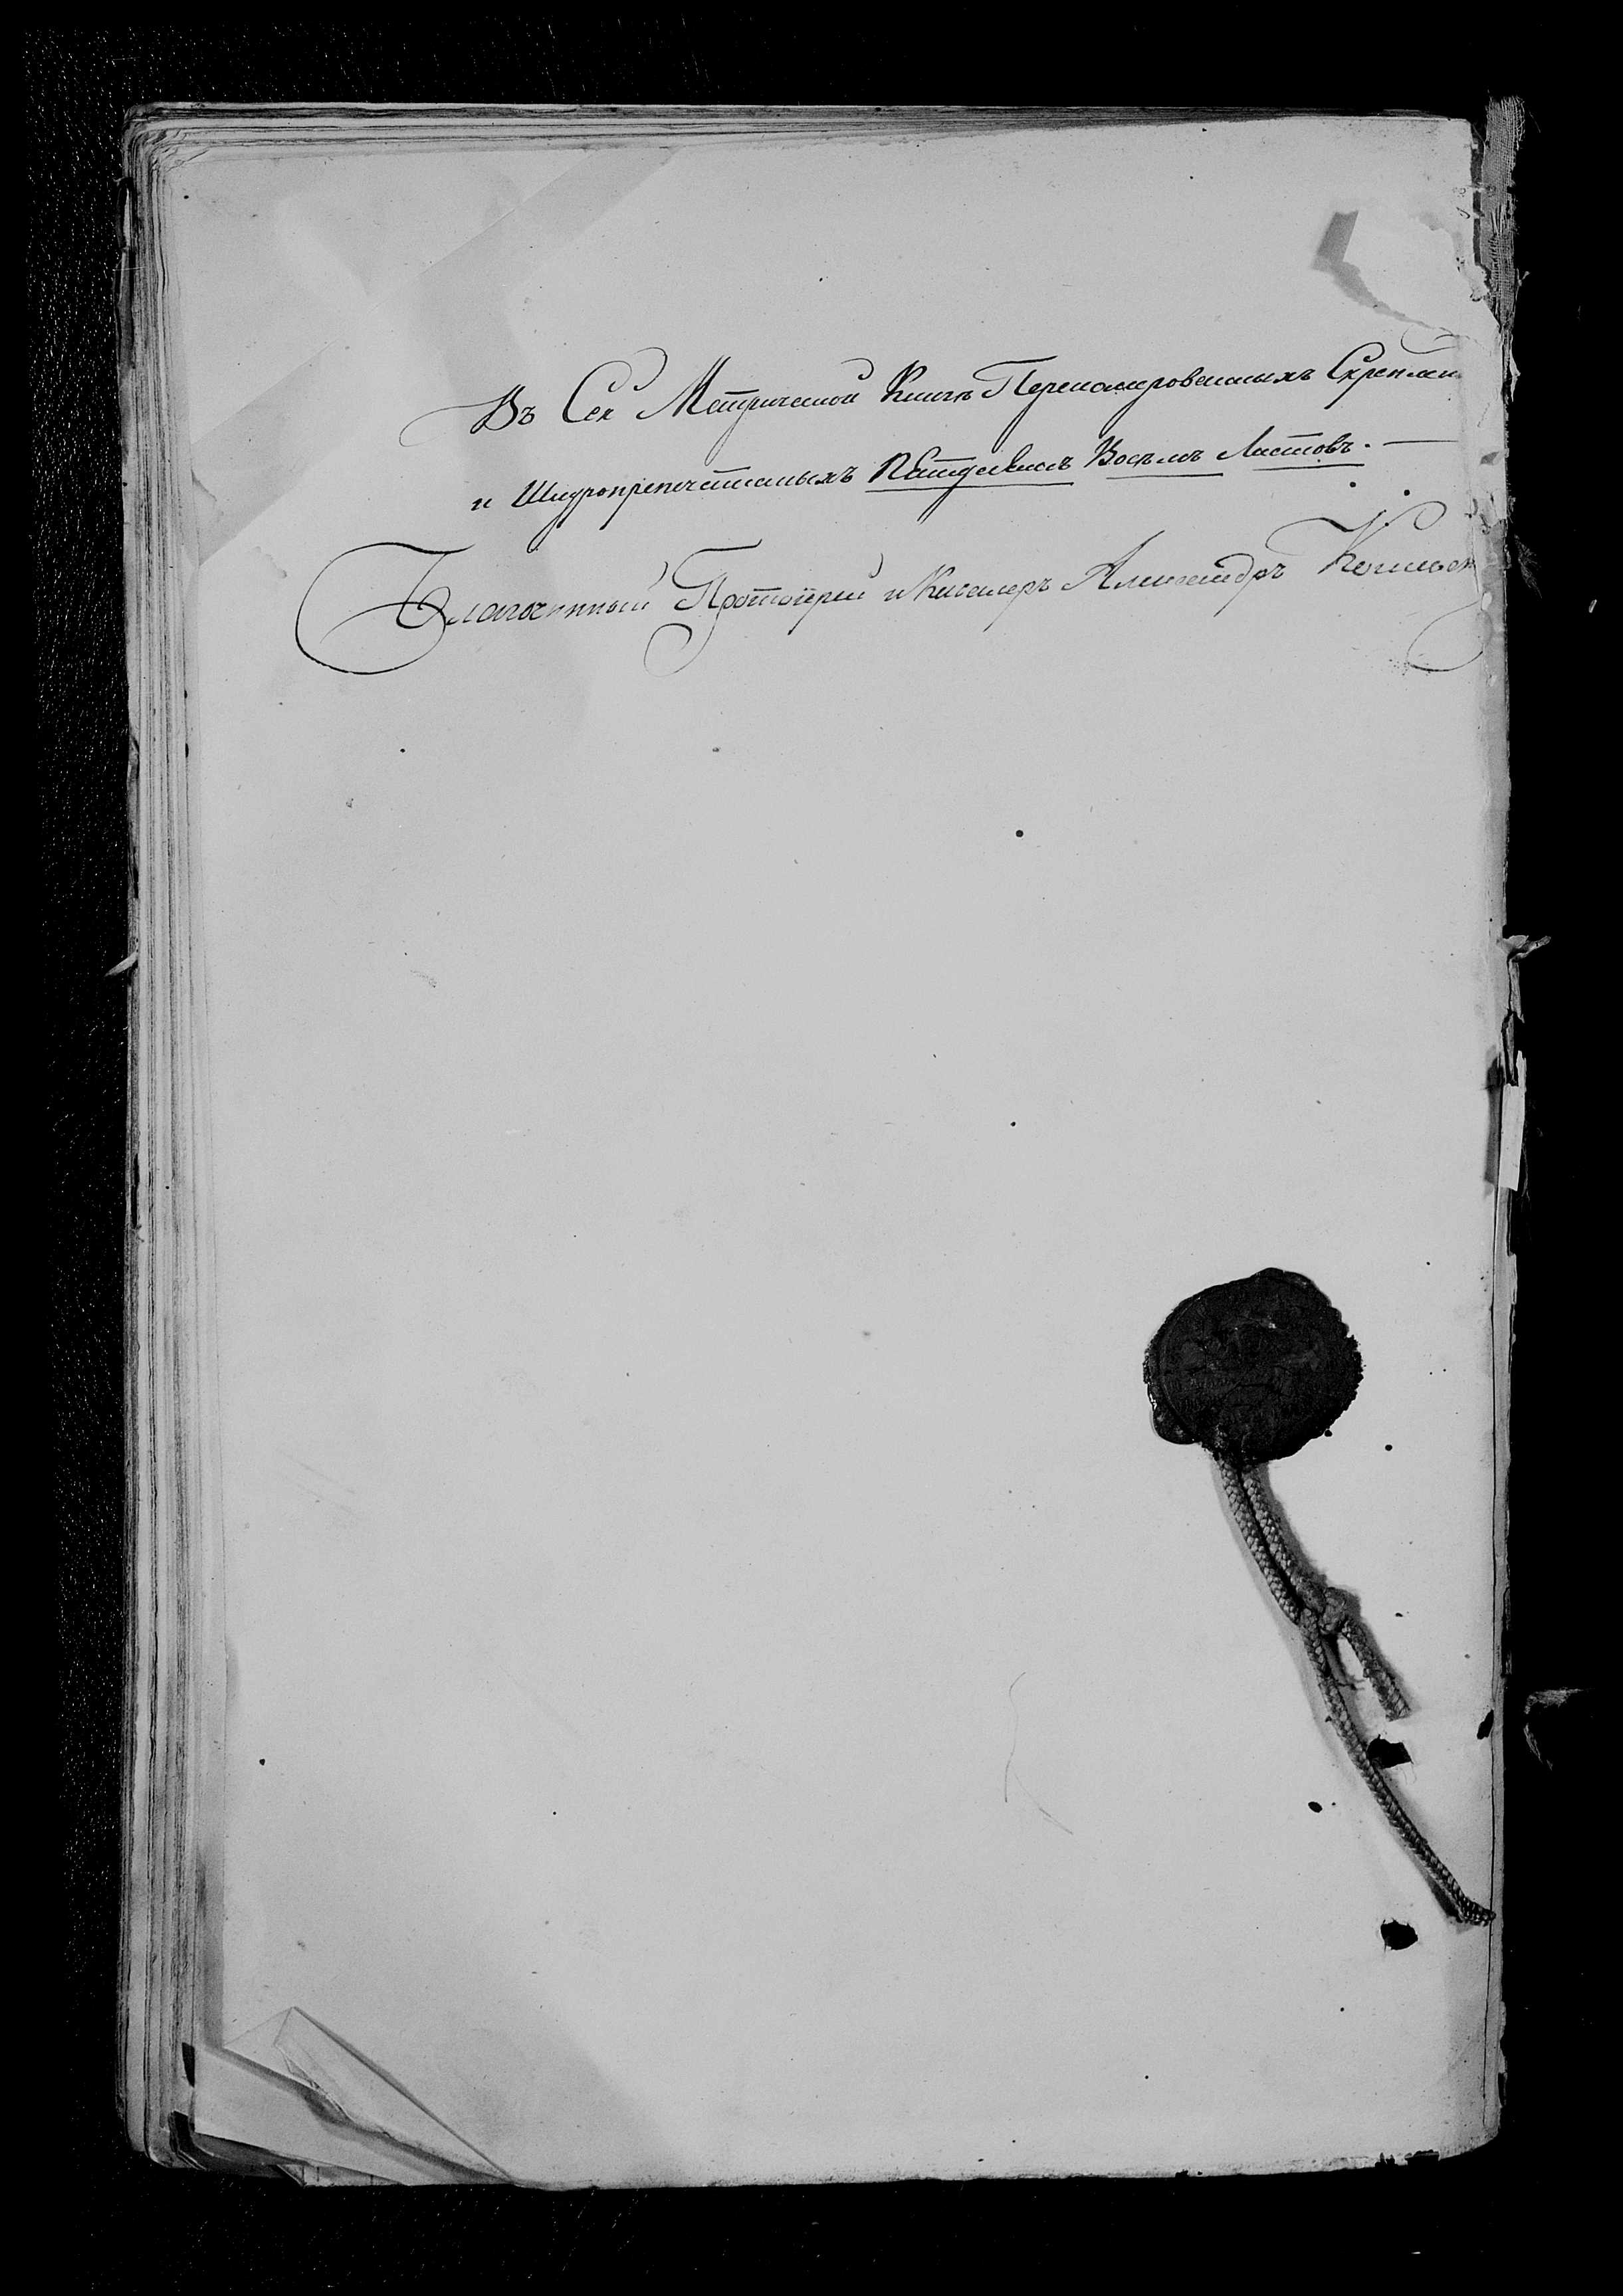 Въ Сей Метрической Книгѣ Перенумерованныхъ Скреплен
и Шнуропрепечатанныхъ Пятдесятъ Восемь Листовъ. —
Благочинный Протоіерей и Кавалеръ Александръ